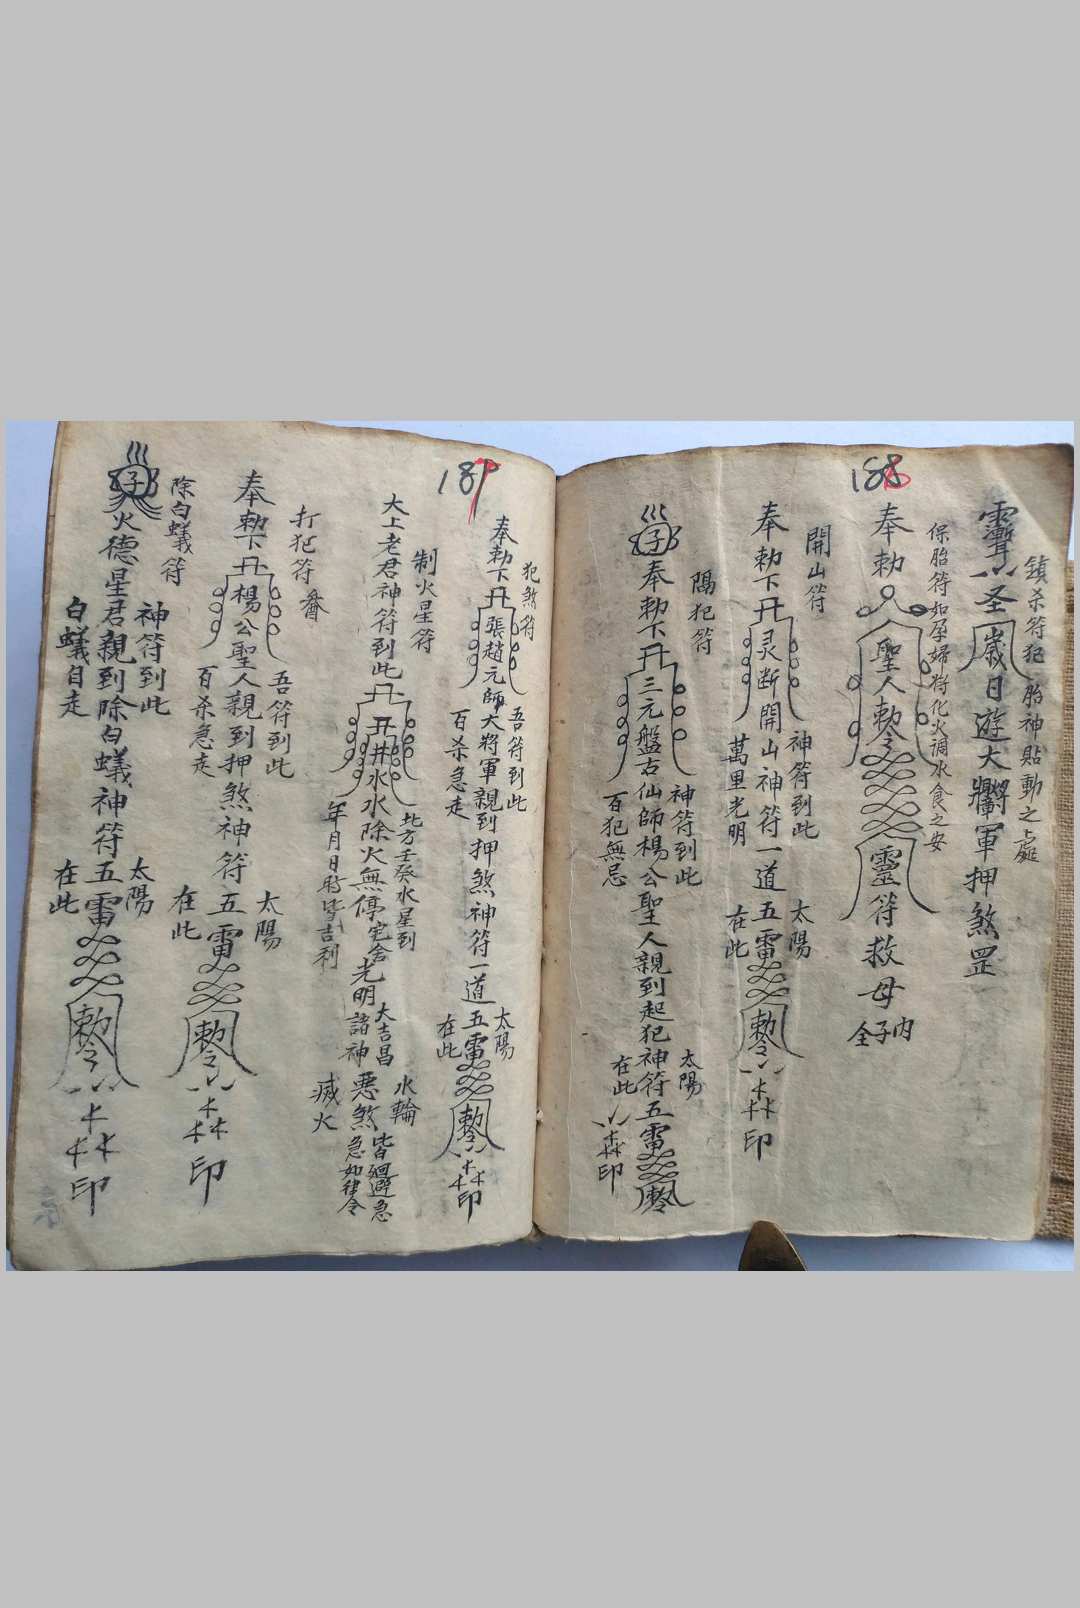 188
鎮杀符犯胎神貼動之處
聖歲日遊大將軍押煞罡
保胎符如孕婦将化火调水食之安
奉勅
聖人勅令
靈符救母
全子内
開山符
奉勅下灵断開山神符一道五雷
神符到此
萬里光明
太陽
在此
勅令
印
犯符
奉勅下三元盤古仙師楊公聖人親到起犯神符五雷
神符到此
百犯無忌
太陽
在此
勅令
印
189
犯煞符
奉勅下張趙元師大將軍親到押煞神符一道五雷
吾符到此
百杀急走
太陽
在此
勅令
印
制火星符
太上老君神符到此
井水水除火無停宅舍光明諸神
北方壬癸水星到
年月日時皆吉利
大吉昌
水輪
滅火
悪煞
皆廻避急
急如律令
打犯符
奉勅下楊公聖人親到押煞神符五雷
吾符到此
百杀急走
太陽
在此
勅令
印
除白蟻符
火德星君親到除白蟻神符五雷
神符到此
白蟻自走
太陽
在此
勅令
印